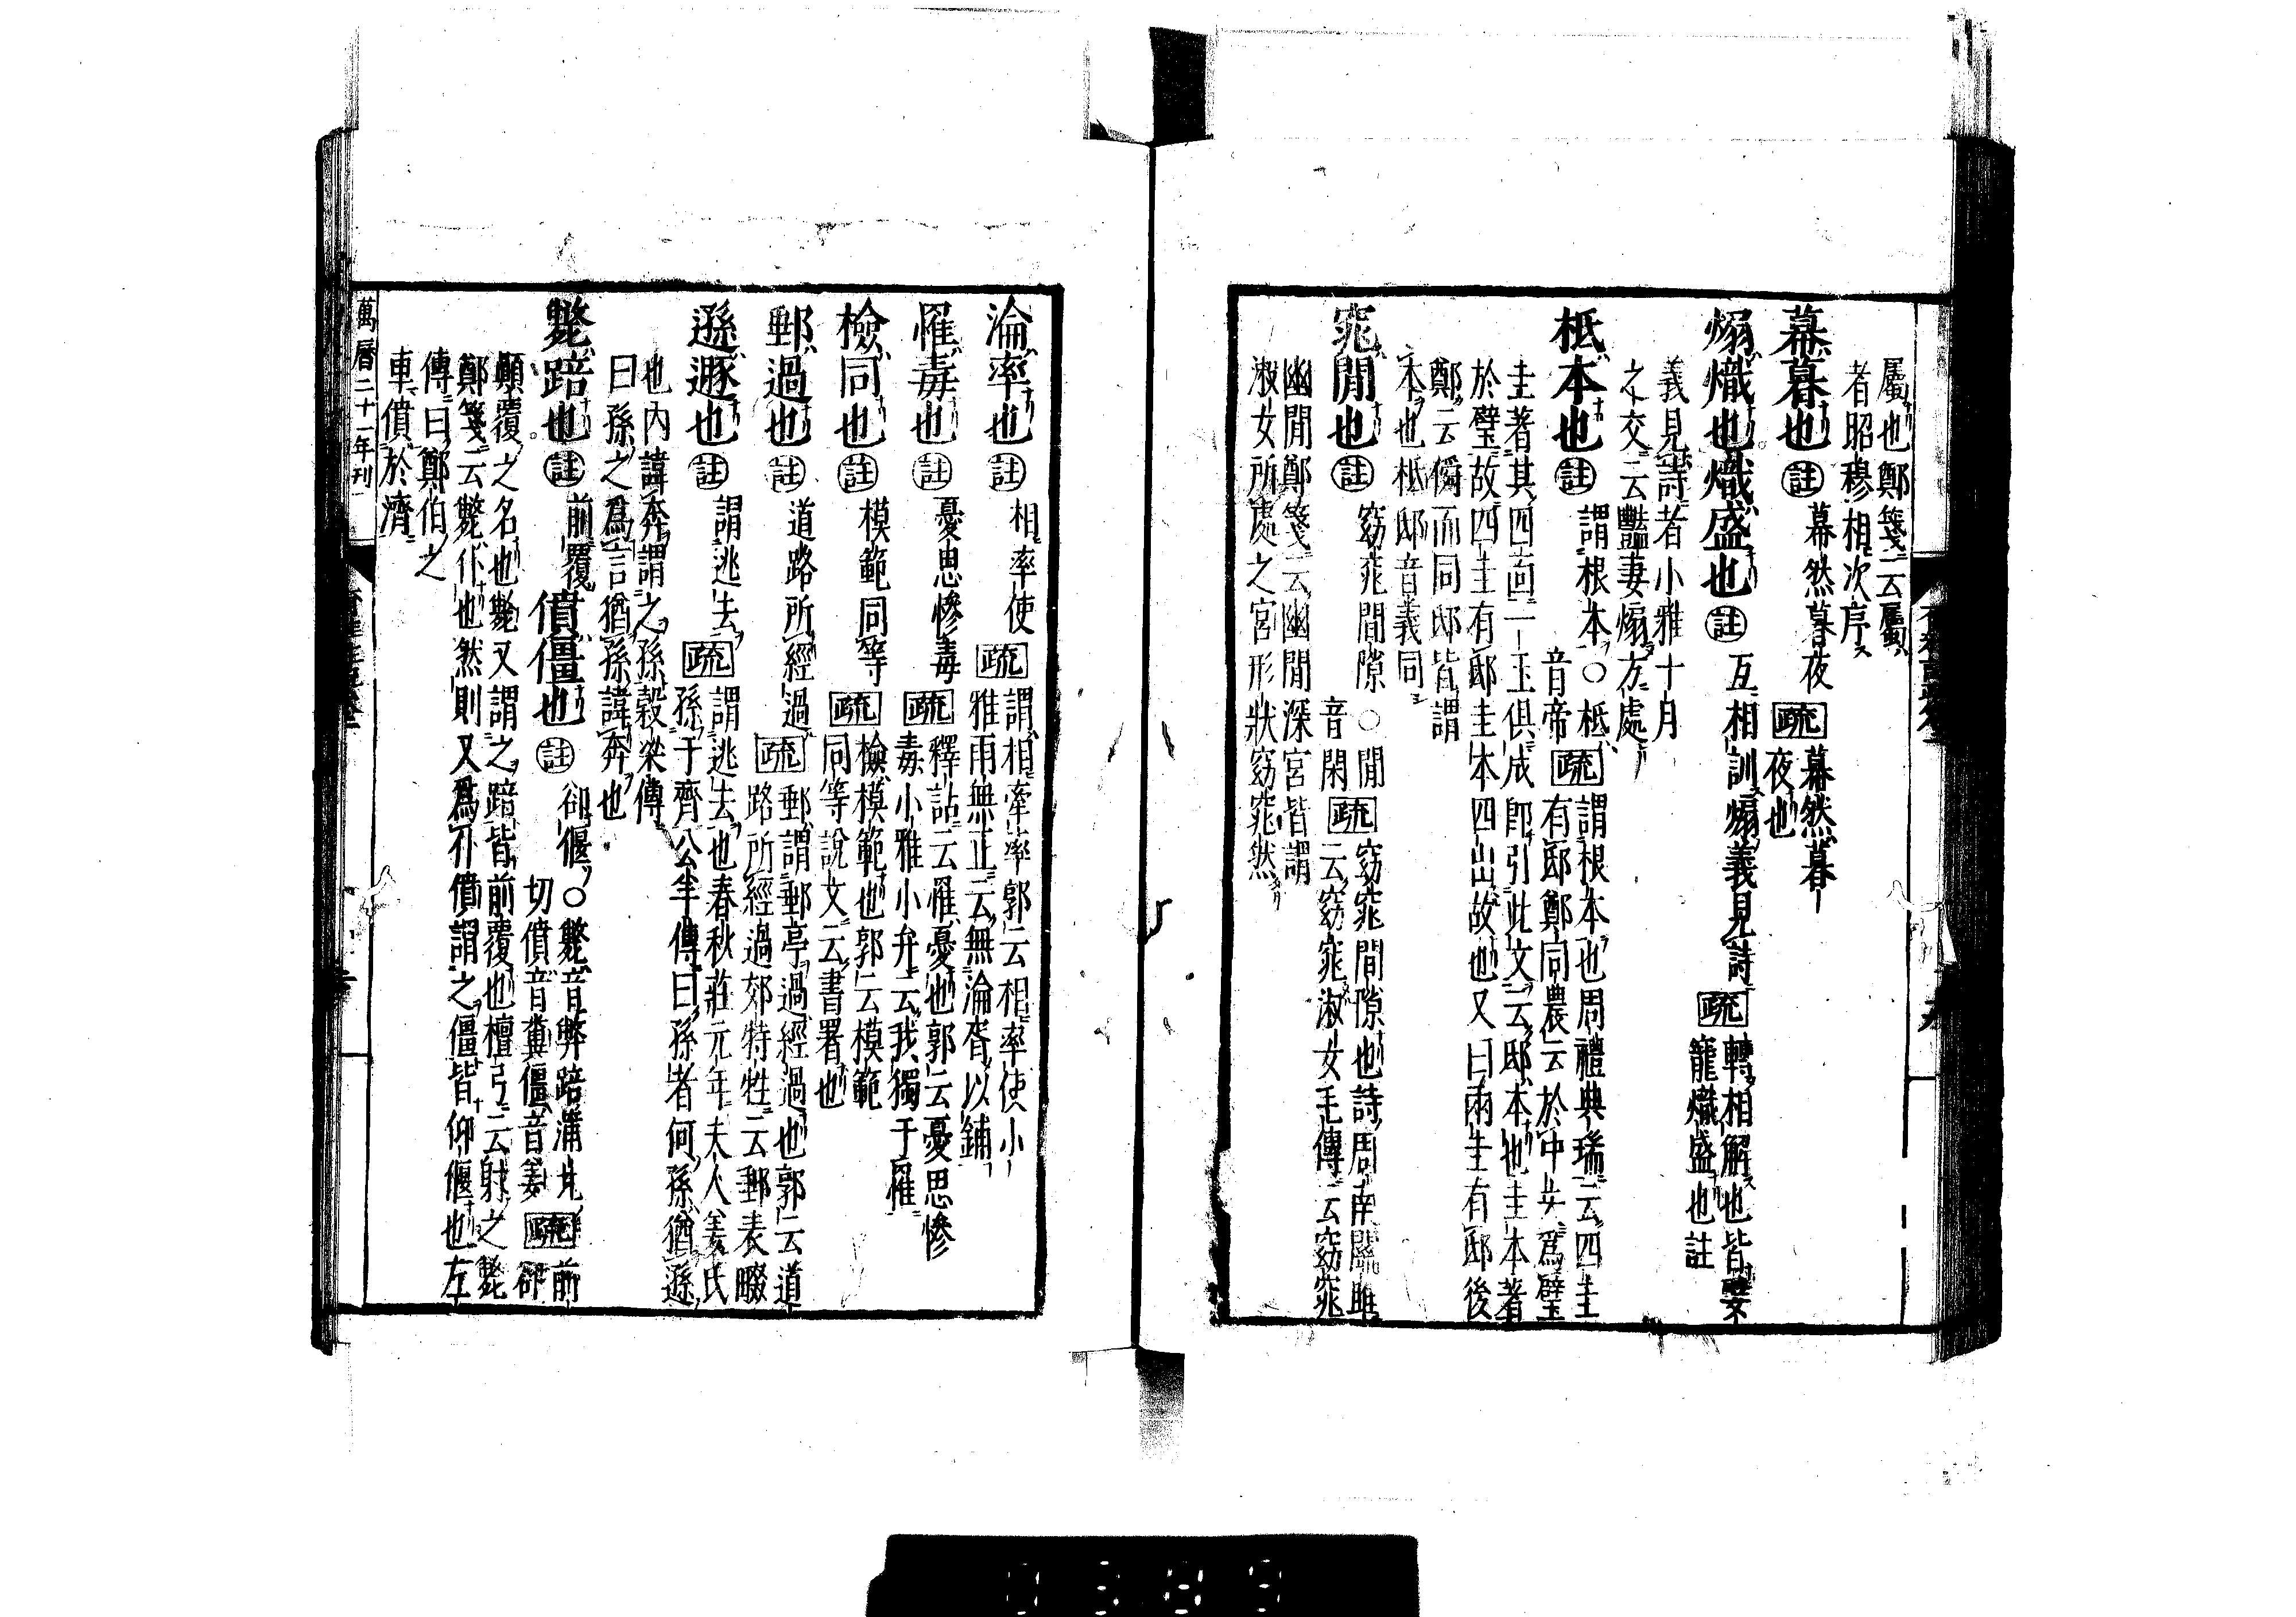 屬也鄭箋云屬
者昭穆相次序
幕暮也註幕然暮夜疏幕然暮
夜也
煽熾也熾盛也註互相訓煽義見詩疏轉相解也皆
寵熾盛也註
義見詩者小雅十月
之交云豔妻煽方處
柢本也註謂根本○柢
音帝疏謂根本也周禮典瑞云四圭
有邸鄭司農云於中央爲璧
圭著其四面一玉俱成卽引此文云邸本也圭本著
於璧故四圭有邸圭本四出故也又曰兩圭有邸後
鄭云僢而同邸皆謂
本也柢邸音義同
窕閒也註窈窕間隙○閒
音閑疏窈窕間隙也詩周南關雎
云窈窕淑女毛傳云窈窕
幽閒鄭箋云幽閒深宮皆謂
淑女所處之宮形狀窈窕然
淪率也註相率使疏謂相牽率郭云相率使小
雅雨無正云無淪胥以鋪
罹毒也註憂思慘毒疏釋詁云罹憂也郭云憂思慘
毒小雅小弁云我獨于罹
檢同也註模範同等疏檢模範也郭云模範
同等說文云書署也
郵過也註道路所經過疏郵謂郵亭過經過也郭云道
路所經過郊特牲云郵表畷
遜遯也註謂逃去疏謂逃去也春秋莊元年夫人姜氏
孫于齊公羊傳曰孫者何孫猶遜
也內諱奔謂之孫穀梁傳
曰孫之爲言猶孫諱奔也
斃踣也註前覆
僨僵也註卻偃○斃音弊踣蒲北
切僨音糞僵音姜疏前
卻
顚覆之名也斃又謂之踣皆前覆也檀弓云射之斃
鄭箋云斃仆也然則又爲仆僨謂之僵皆仰偃也左
傳曰鄭伯之
車僨於濟
萬曆二十一年刊